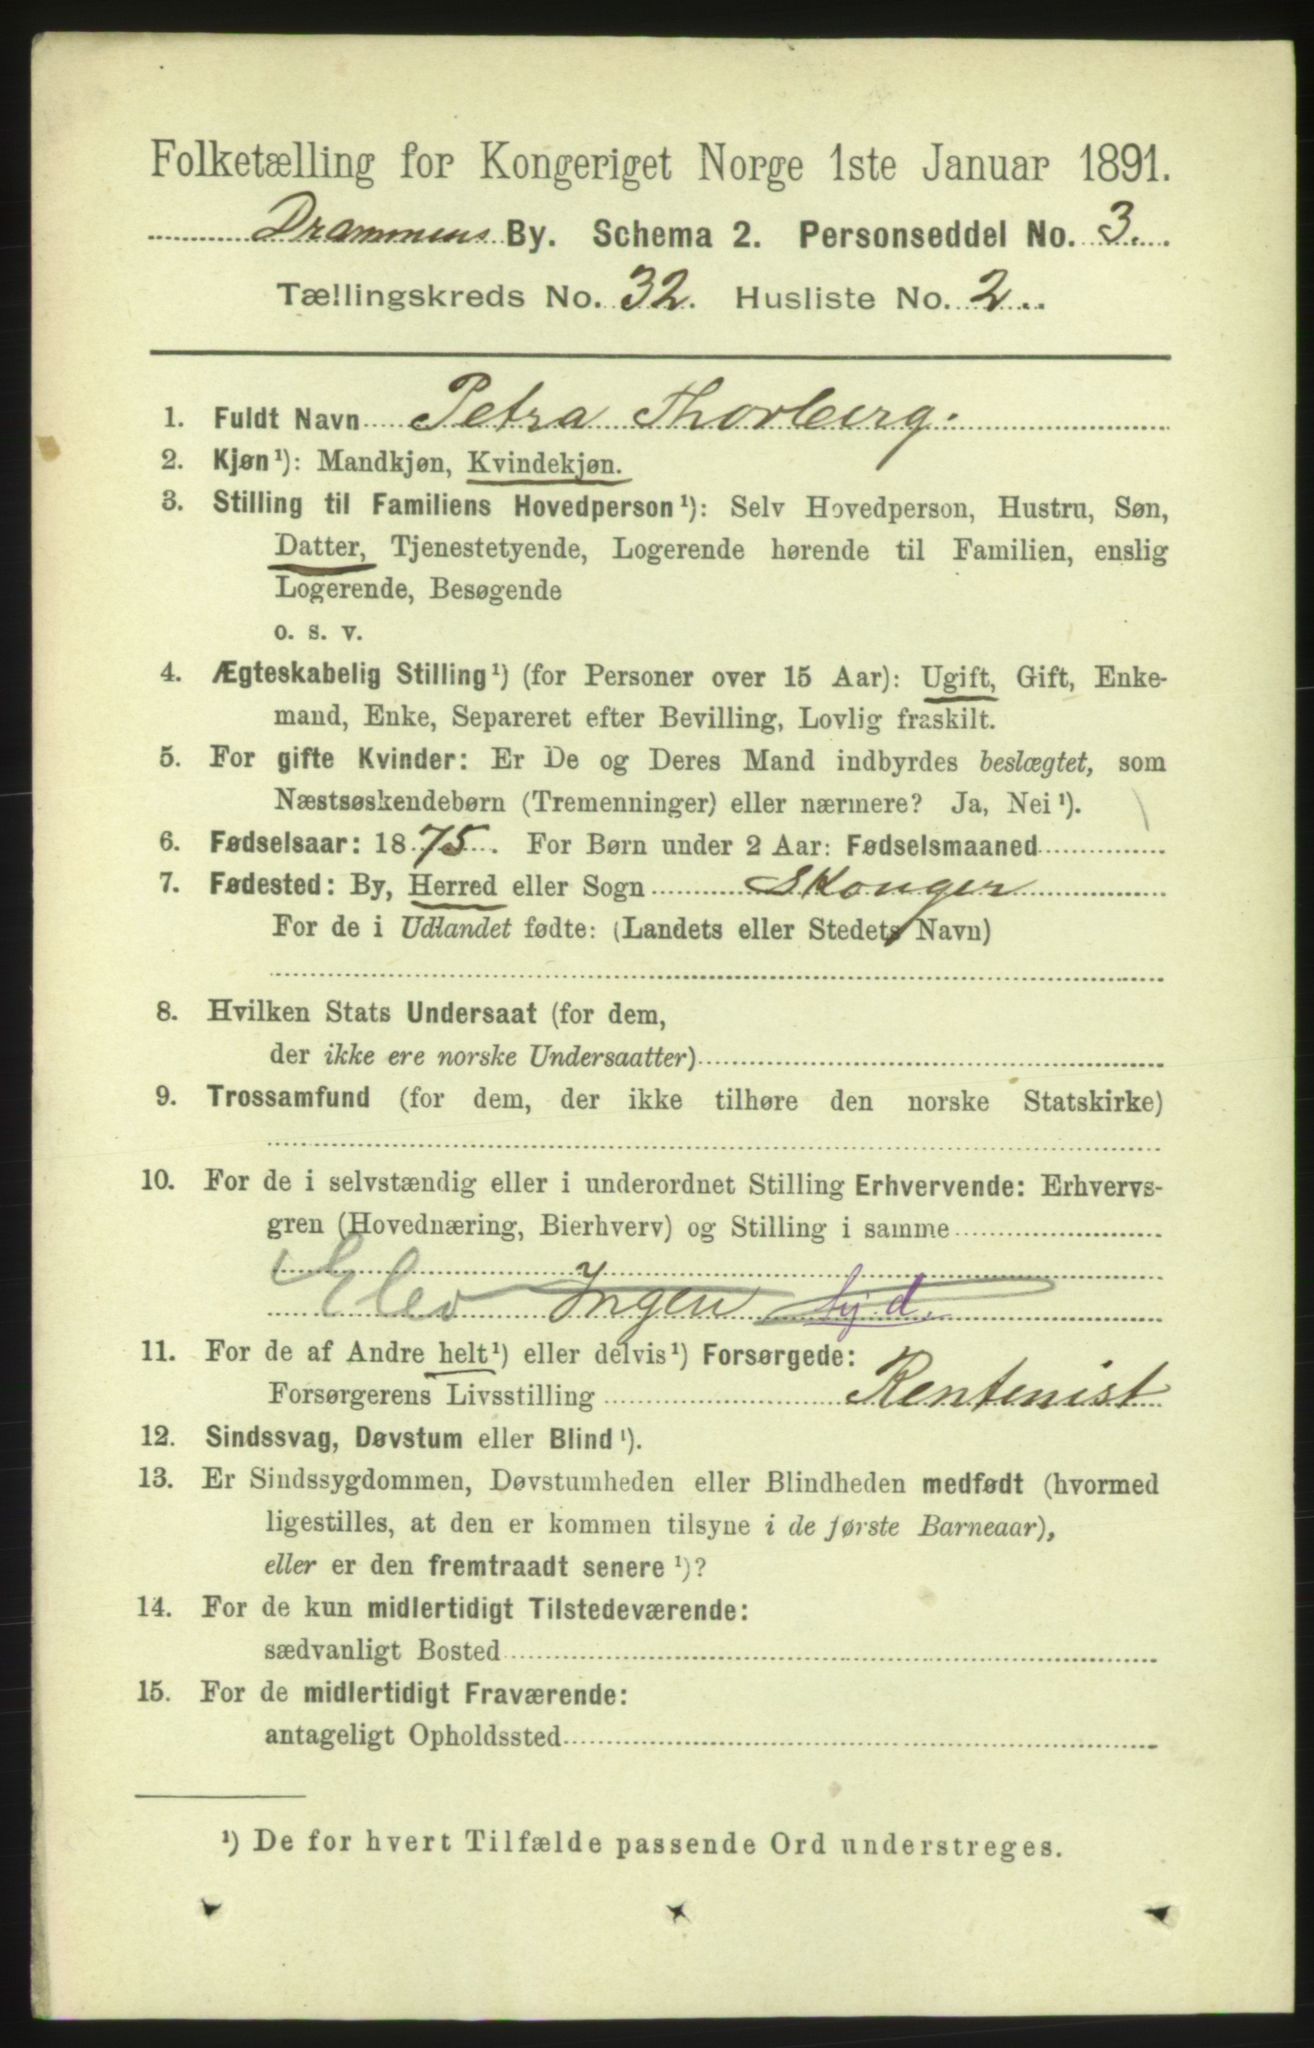 Folketælling for Kongeriget Norge 1ste Januar 1891.
Drammens By. Schema 2. Personseddel No. 3.
Tællingskreds No. 32. Husliste No. 2.
1. Fuldt Navn Petra Thorberg.
2. Kjøn¹): Mandkjøn, Kvindekjøn.
3. Stilling til Familiens Hovedperson¹): Selv Hovedperson, Hustru, Søn,
Datter, Tjenestetyende, Logerende hørende til Familien, enslig
Logerende, Besøgende
o. s. v.
4. Ægteskabelig Stilling¹) (for Personer over 15 Aar): Ugift, Gift, Enke-
mand, Enke, Separeret efter Bevilling, Lovlig fraskilt.
5. For gifte Kvinder: Er De og Deres Mand indbyrdes beslægtet, som
Næstsøskendebørn (Tremenninger) eller nærmere? Ja, Nei¹).
6. Fødselsaar: 1875. For Børn under 2 Aar: Fødselsmaaned
7. Fødested: By, Herred eller Sogn Skouger
For de i Udlandet fødte: (Landets eller Stedets Navn)
8. Hvilken Stats Undersaat (for dem,
der ikke ere norske Undersaatter)
9. Trossamfund (for dem, der ikke tilhøre den norske Statskirke)
10. For de i selvstændig eller i underordnet Stilling Erhvervende: Erhvervs-
gren (Hovednæring, Bierhverv) og Stilling i samme
Elev Ingen
11. For de af Andre helt¹) eller delvis¹) Forsørgede:
Forsørgerens Livsstilling Rentenist
12. Sindssvag, Døvstum eller Blind¹).
13. Er Sindssygdommen, Døvstumheden eller Blindheden medfødt (hvormed
ligestilles, at den er kommen tilsyne i de første Barneaar),
eller er den fremtraadt senere¹)?
14. For de kun midlertidigt Tilstedeværende:
sædvanligt Bosted
15. For de midlertidigt Fraværende:
antageligt Opholdssted
¹) De for hvert Tilfælde passende Ord understreges.